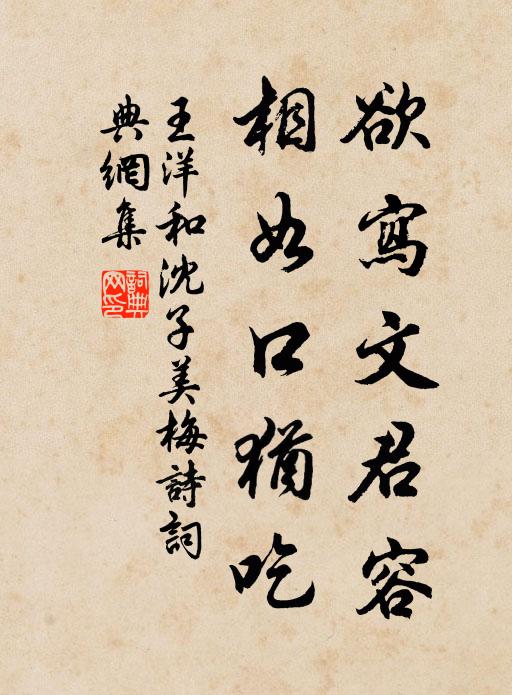 欲寫文君容
相如口猶吃
王洋和沈子美梅詩詞
典網集
詞典网印